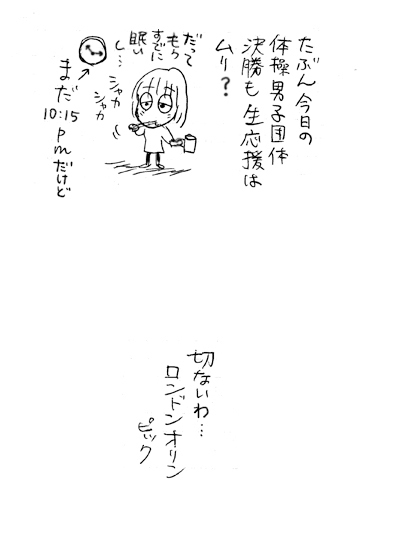 たぶん今日の
体操男子団体
決勝も生応援は
ムリ？
だって
もう
すでに
眠い
し…
シャカ
シャカ
まだ
10:15
pmだけど
切ないわ…
ロンドンオリン
ピック